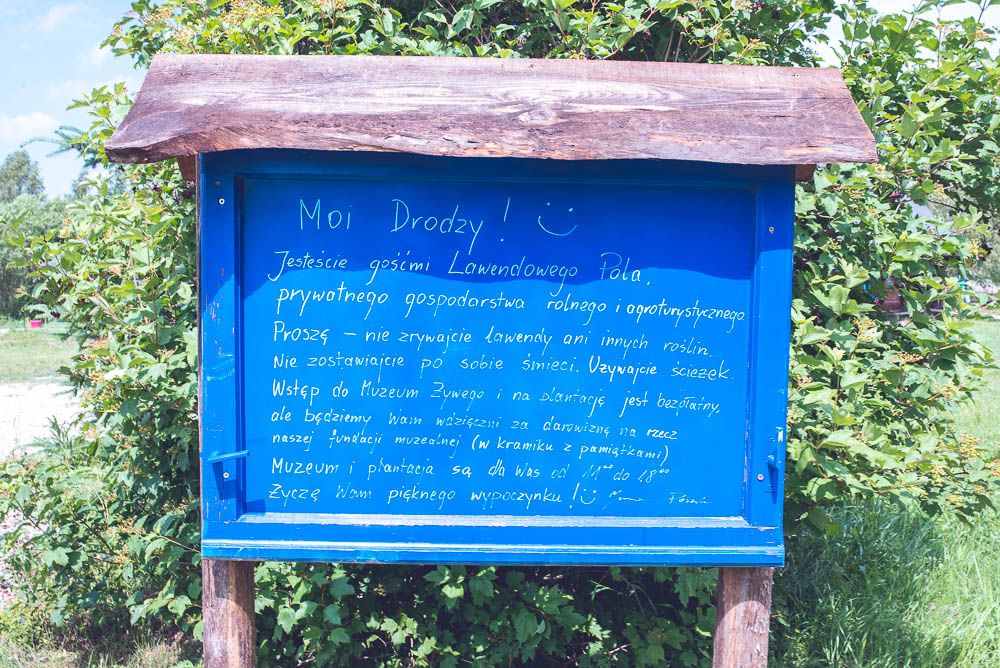 Moi Drodzy!
Jesteście gośćmi Lawendowego Pola,
prywatnego gospodarstwa rolnego i agroturystycznego
Proszę – nie zrywajcie lawendy ani innych roślin.
Nie zostawiajcie po sobie śmieci. Używajcie ścieżek.
Wstęp do Muzeum Żywego i na plantację jest bezpłatny,
ale będziemy Wam wdzięczni za darowiznę na rzecz
naszej fundacji muzealnej (w kramiku z pamiątkami)
Muzeum i plantacja są dla Was od 11⁰⁰ do 18⁰⁰
Życzę Wam pięknego wypoczynku!